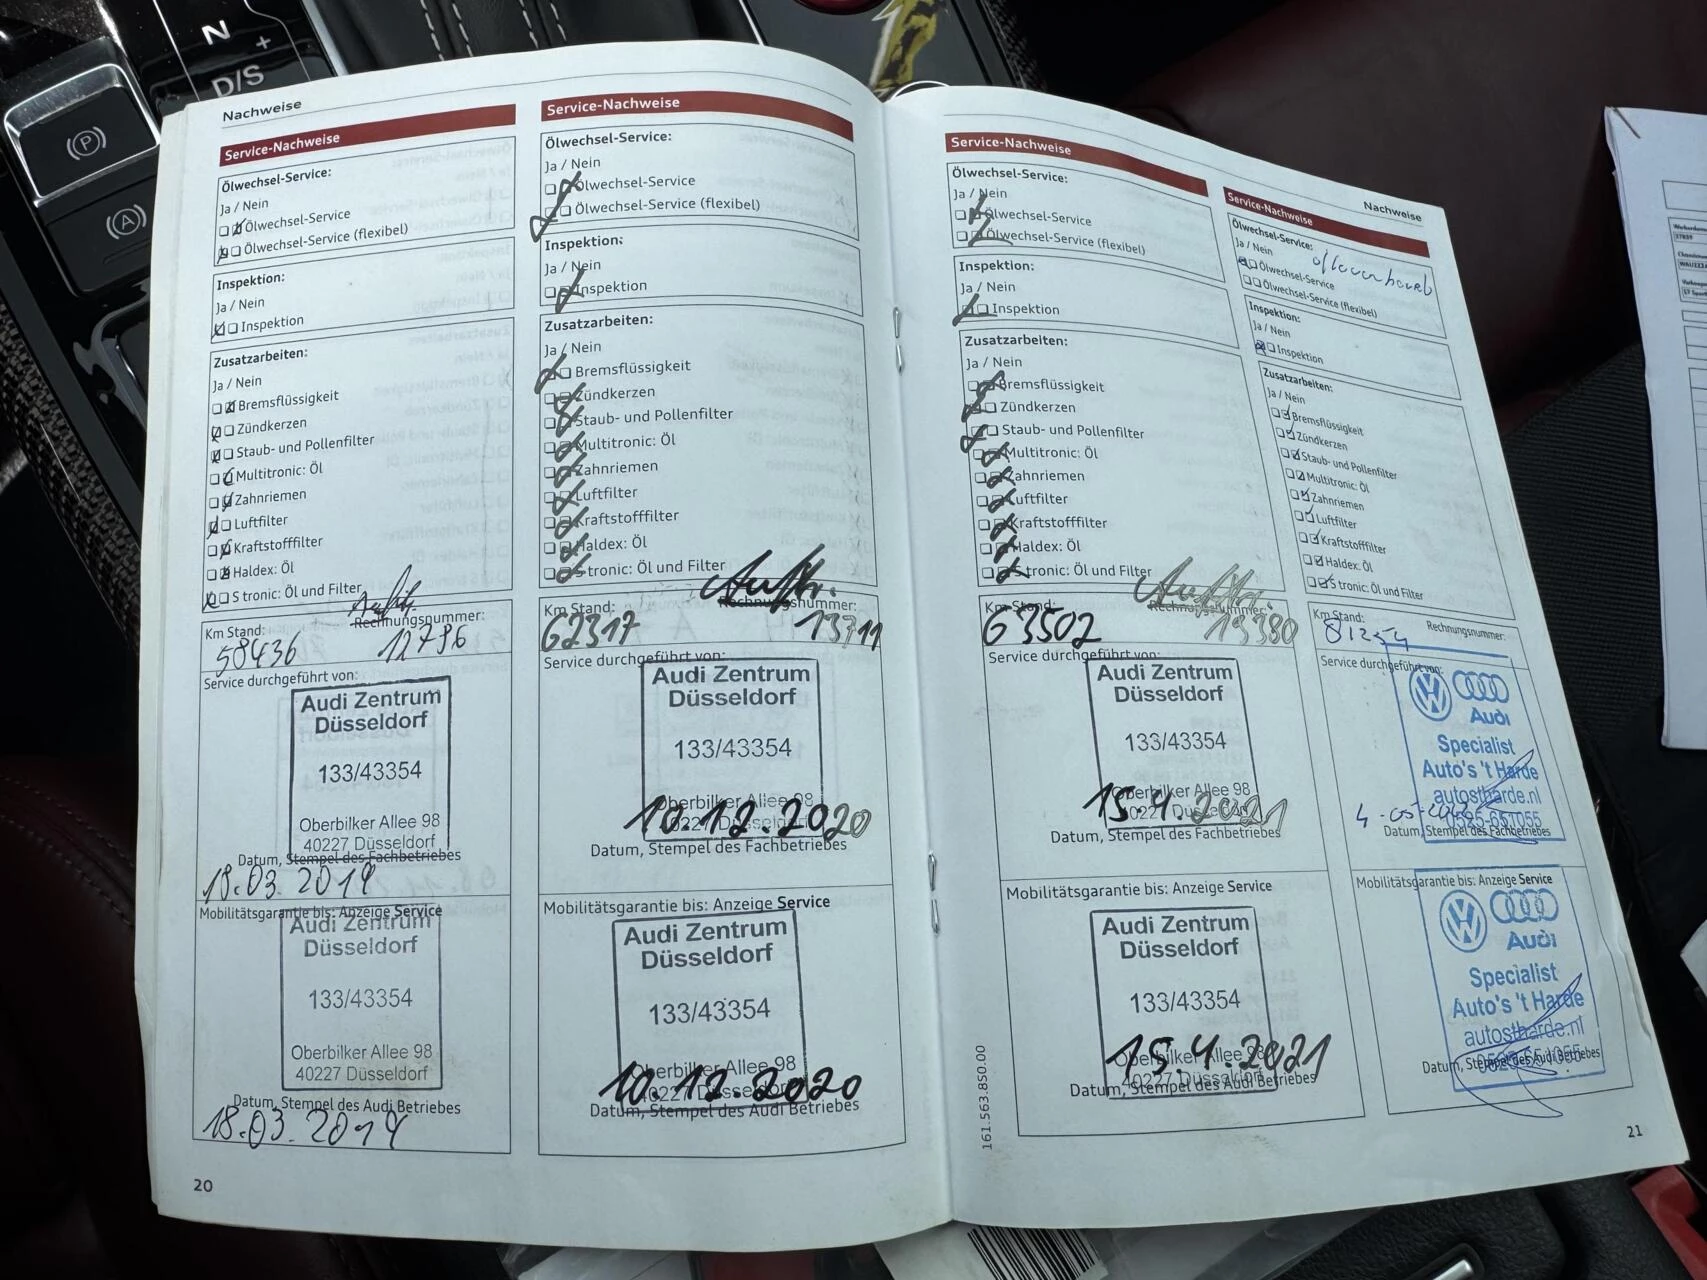 N
+
D/S
P
A
Nachweise
Service-Nachweise
Ölwechsel-Service:
Ja / Nein
Ölwechsel-Service
Ölwechsel-Service (flexibel)
Inspektion:
Ja / Nein
Inspektion
Zusatzarbeiten:
Ja / Nein
Bremsflüssigkeit
Zündkerzen
Staub- und Pollenfilter
Multitronic: Öl
Zahnriemen
Luftfilter
Kraftstofffilter
Haldex: Öl
S tronic: Öl und Filter
Km Stand:
Rechnungsnummer:
58436
12796
Service durchgeführt von:
Audi Zentrum
Düsseldorf
133/43354
Oberbilker Allee 98
40227 Düsseldorf
Datum, Stempel des Fachbetriebes
18.03.2019
Mobilitätsgarantie bis: Anzeige Service
Audi Zentrum
Düsseldorf
133/43354
Oberbilker Allee 98
40227 Düsseldorf
Datum, Stempel des Audi Betriebes
18.03.2019
20
Service-Nachweise
Ölwechsel-Service:
Ja / Nein
Ölwechsel-Service
Ölwechsel-Service (flexibel)
Inspektion:
Ja / Nein
Inspektion
Zusatzarbeiten:
Ja / Nein
Bremsflüssigkeit
Zündkerzen
Staub- und Pollenfilter
Multitronic: Öl
Zahnriemen
Luftfilter
Kraftstofffilter
Haldex: Öl
S tronic: Öl und Filter
Km Stand:
Rechnungsnummer:
62317
13711
Service durchgeführt von:
Audi Zentrum
Düsseldorf
133/43354
Oberbilker Allee 98
40227 Düsseldorf
10.12.2020
Datum, Stempel des Fachbetriebes
Mobilitätsgarantie bis: Anzeige Service
Audi Zentrum
Düsseldorf
133/43354
Oberbilker Allee 98
40227 Düsseldorf
10.12.2020
Datum, Stempel des Audi Betriebes
Service-Nachweise
Ölwechsel-Service:
Ja / Nein
Ölwechsel-Service
Ölwechsel-Service (flexibel)
Inspektion:
Ja / Nein
Inspektion
Zusatzarbeiten:
Ja / Nein
Bremsflüssigkeit
Zündkerzen
Staub- und Pollenfilter
Multitronic: Öl
Zahnriemen
Luftfilter
Kraftstofffilter
Haldex: Öl
S tronic: Öl und Filter
Km Stand:
Rechnungsnummer:
63502
Service durchgeführt von:
Audi Zentrum
Düsseldorf
133/43354
Oberbilker Allee 98
40227 Düsseldorf
15.4.2021
Datum, Stempel des Fachbetriebes
Mobilitätsgarantie bis: Anzeige Service
Audi Zentrum
Düsseldorf
133/43354
Oberbilker Allee 98
40227 Düsseldorf
15.4.2021
Datum, Stempel des Audi Betriebes
161.563.850.00
Nachweise
Service-Nachweise
Ölwechsel-Service:
Ja / Nein
Ölwechsel-Service
Ölwechsel-Service (flexibel)
Inspektion:
Ja / Nein
Inspektion
Zusatzarbeiten:
Ja / Nein
Bremsflüssigkeit
Zündkerzen
Staub- und Pollenfilter
Multitronic: Öl
Zahnriemen
Luftfilter
Kraftstofffilter
Haldex: Öl
S tronic: Öl und Filter
Km Stand:
Rechnungsnummer:
81254
Service durchgeführt von:
Audi
Specialist
Auto's 't Harde
autostharde.nl
0525-651055
Datum, Stempel des Fachbetriebes
Mobilitätsgarantie bis: Anzeige Service
Audi
Specialist
Auto's 't Harde
autostharde.nl
0525-651055
Datum, Stempel des Audi Betriebes
21